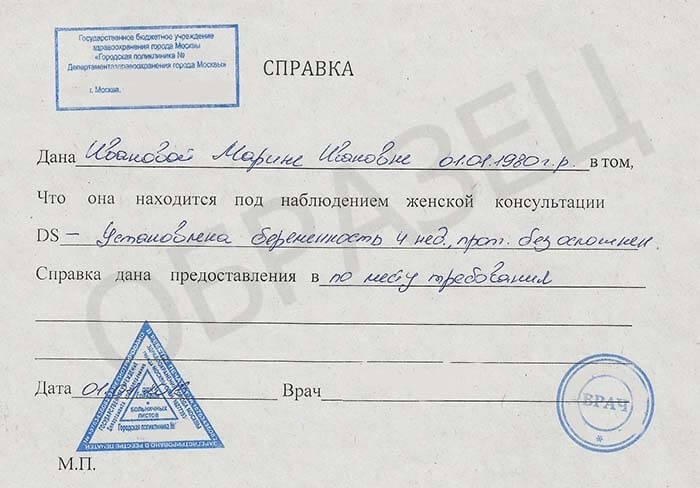 Государственное бюджетное учреждение
здравоохранения города Москвы
«Городская поликлиника №
Департамента здравоохранения города Москвы»
г. Москва,
СПРАВКА
ОБРАЗЕЦ
Дана Ивановой Марине Ивановне 01.01.1980 г.р. в том,
Что она находится под наблюдением женской консультации
DS – Установлена беременность 4 нед., прот. без осложнен.
Справка дана предоставления в по месту требования
Дата 01. Врач
БОЛЬНИЧНЫХ
ЛИСТОВ
Городская поликлиника №
ЗАРЕГИСТРИРОВАНО В РЕЕСТРЕ ПЕЧАТЕЙ
ВРАЧ
М.П.